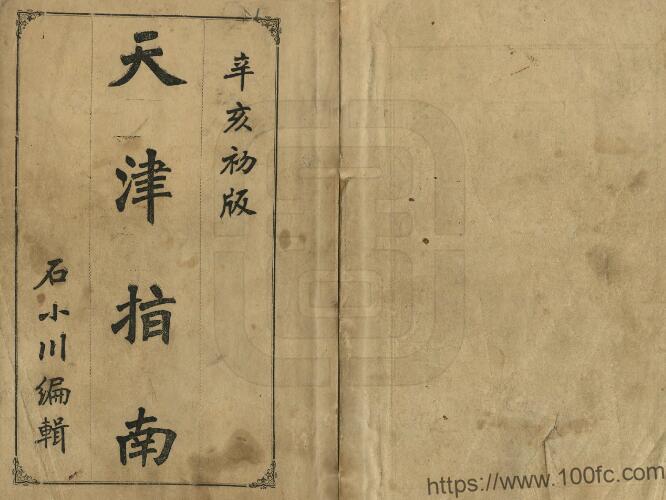 辛亥初版
天津指南
石小川編輯
https://www.100fc.com